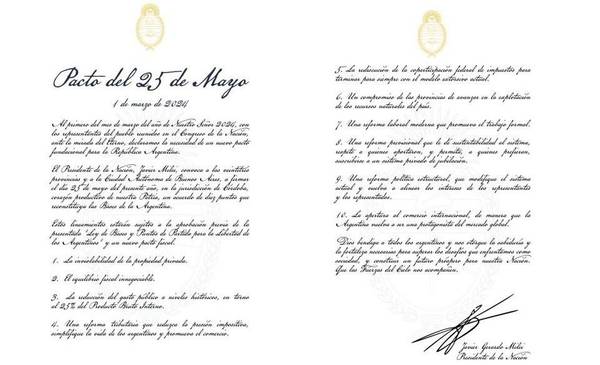 Pacto del 25 de Mayo
1 de marzo de 2024
Al primero del mes de marzo del año de Nuestro Señor 2024, con
los representantes del pueblo reunidos en el Congreso de la Nación,
ante la mirada del Eterno, declaramos la necesidad de un nuevo pacto
fundacional para la República Argentina.
El Presidente de la Nación, Javier Milei, convoca a las veintitrés
provincias y a la Ciudad Autónoma de Buenos Aires, a firmar
el día 25 de mayo del presente año, en la jurisdicción de Córdoba,
corazón productivo de nuestra Patria, un acuerdo de diez puntos que
reconstituya las Bases de la Argentina.
Estos lineamientos estarán sujetos a la aprobación previa de la
presentada "Ley de Bases y Puntos de Partida para la Libertad de
los Argentinos" y un nuevo pacto fiscal.
1. La inviolabilidad de la propiedad privada.
2. El equilibrio fiscal innegociable.
3. La reducción del gasto público a niveles históricos, en torno
al 25% del Producto Bruto Interno.
4. Una reforma tributaria que reduzca la presión impositiva,
simplifique la vida de los argentinos y promueva el comercio.
5. La rediscusión de la coparticipación federal de impuestos para
terminar para siempre con el modelo extorsivo actual.
6. Un compromiso de las provincias de avanzar en la explotación
de los recursos naturales del país.
7. Una reforma laboral moderna que promueva el trabajo formal.
8. Una reforma previsional que le dé sustentabilidad al sistema,
respete a quienes aportaron, y permita, a quienes prefieran,
suscribirse a un sistema privado de jubilación.
9. Una reforma política estructural, que modifique el sistema
actual y vuelva a alinear los intereses de los representantes
y los representados.
10. La apertura al comercio internacional, de manera que la
Argentina vuelva a ser una protagonista del mercado global.
Dios bendiga a todos los argentinos y nos otorgue la sabiduría y
la fortaleza necesarias para superar los desafíos que enfrentamos como
sociedad, y construir un futuro próspero para nuestra Nación.
Que las Fuerzas del Cielo nos acompañen.
Javier Gerardo Milei
Presidente de la Nación